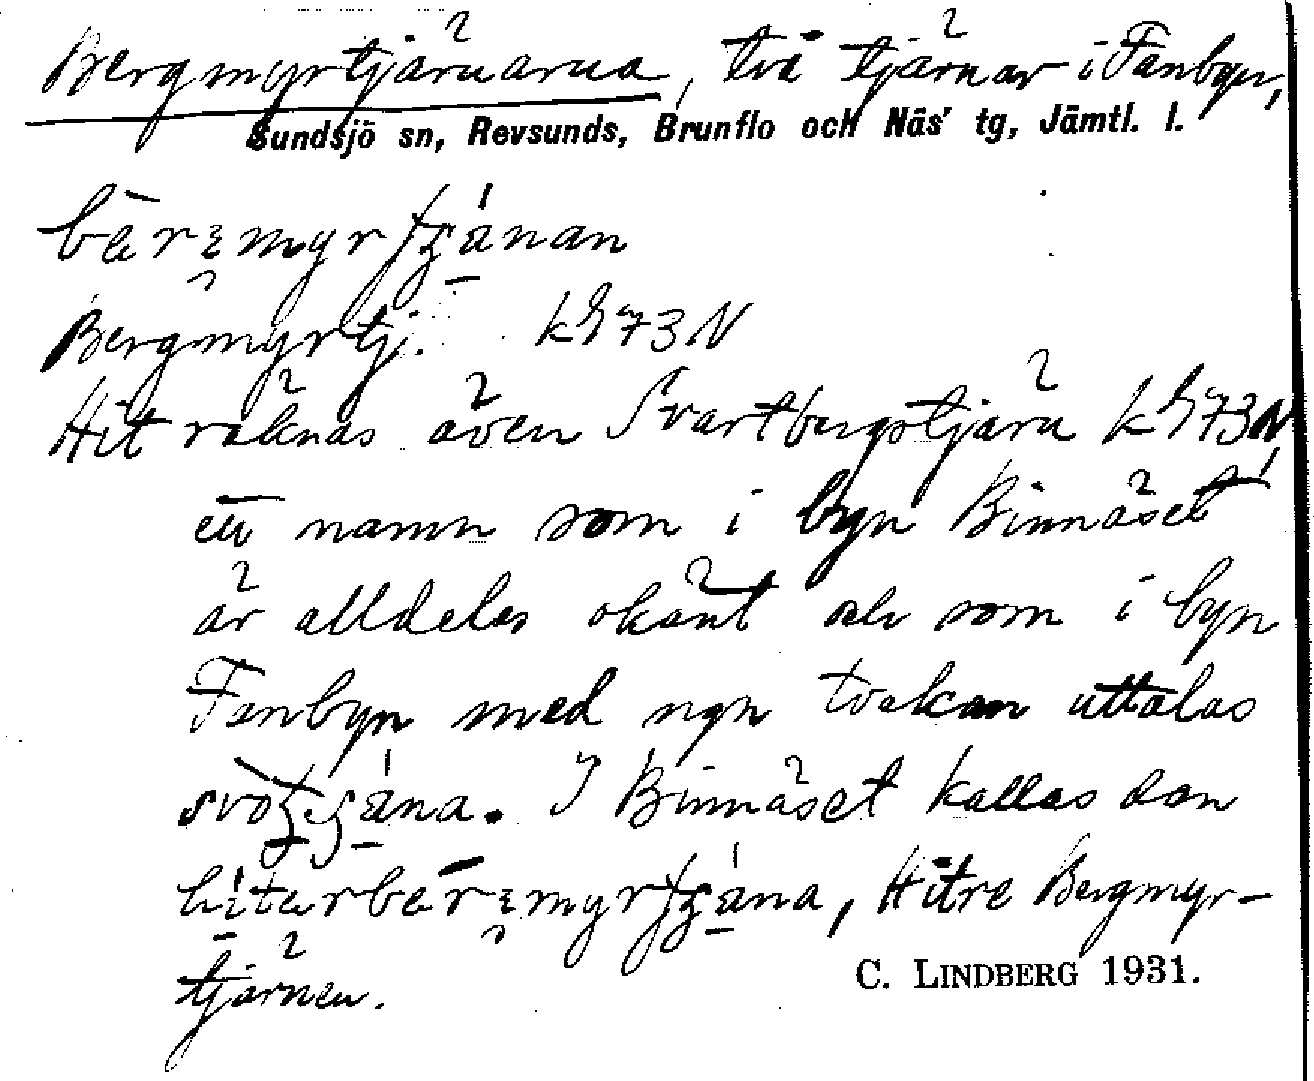 Bergmyrtjärnarna, två tjärnar i Fanbyn,
Sundsjö sn, Revsunds, Brunflo och Näs' tg, Jämtl. l.
Bergmyrtj. kh 73 N
Hit räknas även Svartbergstjärn kh 73 N,
ett namn som i byn Binnäset
är alldeles okänt och som i byn
Fanbyn med ngn tvekan uttalas
I Binnäset kallas den
Hitre Bergmyr-
tjärnen.
C. LINDBERG 1931.